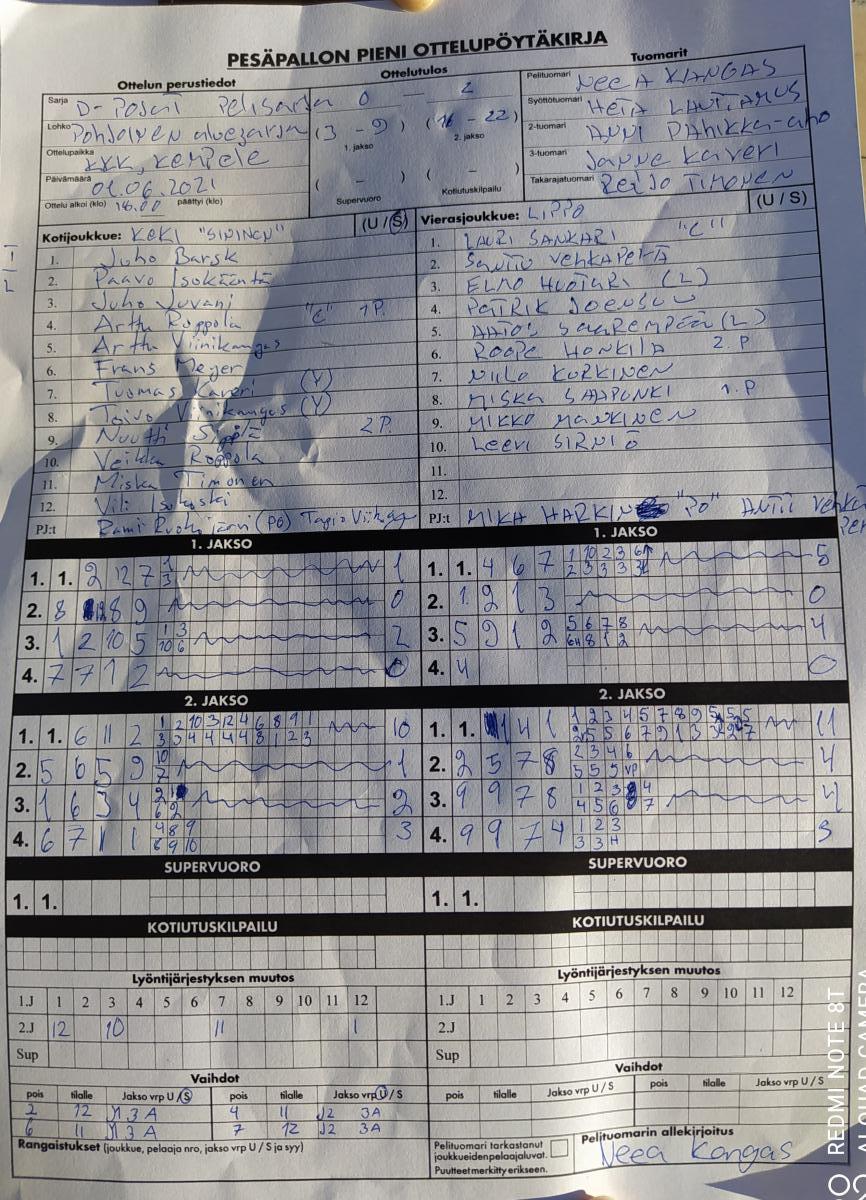 PESÄPALLON PIENI OTTELUPÖYTÄKIRJA
Ottelun perustiedot
Ottelutulos
Tuomarit
Sarja D-Pojat Pelisarja
0 – 2
Pelituomari NEEA KANGAS
Lohko Pohjoinen aluesarja
(3 - 9) 1. jakso
(16 - 22) 2. jakso
Syöttötuomari HETA
2-tuomari ANNI
Ottelupaikka KKK, KEMPELE
3-tuomari Janne Kaveri
Päivämäärä 01.06.2021
( - ) Supervuoro
( - ) Kotiutuskilpailu
Takarajatuomari REIJO TIMONEN
Ottelu alkoi (klo) 16.00 päättyi (klo)
Kotijoukkue: KeKi "SININEN" (U / S)
1. Juho Barsk
2. Paavo Isokääntä
3. Juho Juvani
4. Arttu Roppola "C" 1P.
5. Arttu Viinikangas
6. Frans Meyer
7. Tuomas Kaveri (Y)
8. Toivo Viinikangas (Y)
9. Nuutti 2P.
10. Veikka Roppola
11. Miska Timonen
12. Vili Isokoski
PJ:t Rami (PÖ)
Vierasjoukkue: LIPPO (U / S)
1. LAURI SANKARI "C"
2. SANTTU VEHKAPERÄ
3. ELMO (L)
4. PATRIK JOENSUU
5. (L)
6. ROOPE HONKILA 2. P
7. NIILO KORKINEN
8. MISKA SAAPUNKI 1. P
9. MIKKO MANKINEN
10. LEEVI SIRNIÖ
11.
12.
PJ:t MIKA "PÖ" ANTTI
1. JAKSO
1. 1. 2 12 7 1
3 1
2. 8 8 9 0
3. 1 2 10 5 1 3
10 6 2
4. 7 7 1 2 0
1. JAKSO
1. 1. 4 6 7 1 10 2 3
2 3 3 3 5
2. 1 2 1 3 0
3. 5 9 1 2 5 6 7 8
8 1 2 4
4. 4 0
2. JAKSO
1. 1. 6 11 2 1 2 10 3 12 4 6 8 9 1
3 3 4 4 4 4 8 1 2 3 10
2. 5 6 5 9 10
7 1
3. 1 6 3 4 2
6 2 2
4. 6 7 1 1 4 8 9
6 9 10 3
2. JAKSO
1. 1. 1 4 1 1 2 3 4 5 7 8 9
5 5 6 7 9 1 3 11
2. 2 5 7 8 2 3 4 6
5 5 5 VP 4
3. 9 9 7 8 1 2 3 4
4 5 6 7 4
4. 9 9 7 4 1 2 3
3 3 H 3
SUPERVUORO
1. 1.
SUPERVUORO
1. 1.
KOTIUTUSKILPAILU
KOTIUTUSKILPAILU
Lyöntijärjestyksen muutos
1.J 1 2 3 4 5 6 7 8 9 10 11 12
2.J 12 10 11 1
Sup
Lyöntijärjestyksen muutos
1.J 1 2 3 4 5 6 7 8 9 10 11 12
2.J
Sup
Vaihdot
pois tilalle Jakso vrp U / S pois tilalle Jakso vrp U / S
2 12 J1 3 A 4 11 J2 3A
6 11 J1 3 A 7 12 J2 3A
Rangaistukset (joukkue, pelaaja nro, jakso vrp U / S ja syy)
Vaihdot
pois tilalle Jakso vrp U / S pois tilalle Jakso vrp U / S
Pelituomari tarkastanut
joukkueidenpelaajaluvat.
Puutteet merkitty erikseen.
Pelituomarin allekirjoitus
Neea Kangas
REDMI NOTE 8T